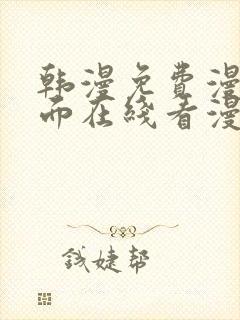 韩漫免费漫
而在线看漫
钱婕帮